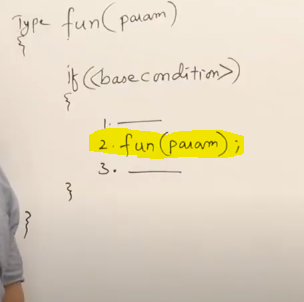 Type fun(param)
{
if(<basecondition>)
{
1. ____
2. fun(param);
3. ____
}
}